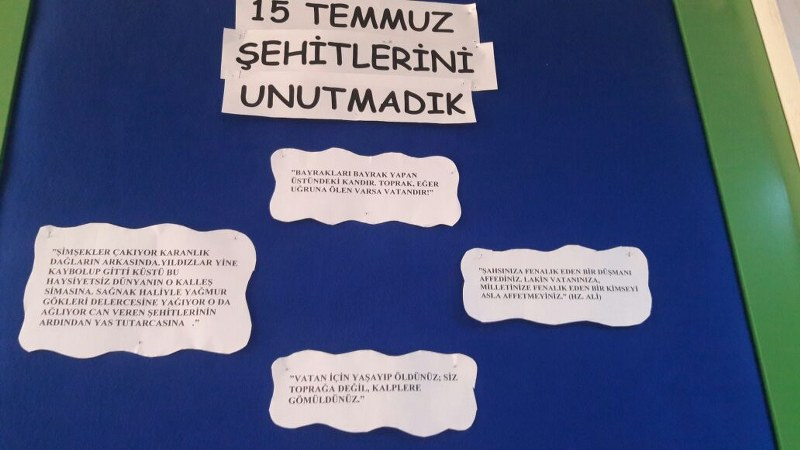 15 TEMMUZ
ŞEHİTLERİNİ
UNUTMADIK
"BAYRAKLARI BAYRAK YAPAN
ÜSTÜNDEKİ KANDIR. TOPRAK, EĞER
UĞRUNA ÖLEN VARSA VATANDIR!"
"ŞİMŞEKLER ÇAKIYOR KARANLIK
DAĞLARIN ARKASINDA.YILDIZLAR YİNE
KAYBOLUP GİTTİ KÜSTÜ BU
HAYSİYETSİZ DÜNYANIN O KALLEŞ
SİMASINA. SAĞNAK HALİYLE YAĞMUR
GÖKLERİ DELERCESİNE YAĞIYOR O DA
AĞLIYOR CAN VEREN ŞEHİTLERİNİN
ARDINDAN YAS TUTARCASINA ."
"ŞAHSINIZA FENALIK EDEN BİR DÜŞMANI
AFFEDİNİZ. LAKİN VATANINIZA,
MİLLETİNİZE FENALIK EDEN BİR KİMSEYİ
ASLA AFFETMEYİNİZ." (HZ. ALİ)
"VATAN İÇİN YAŞAYIP ÖLDÜNÜZ; SİZ
TOPRAĞA DEĞİL, KALPLERE
GÖMÜLDÜNÜZ."